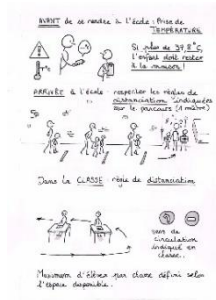 AVANT de se rendre à l'école : Prise de
TEMPÉRATURE
Si plus de 37,8°C,
l'enfant doit rester
à la maison !
ARRIVÉE à l'école : respecter les règles de
distanciation indiquées
sur le parcours (1 mètre)
Dans la CLASSE : règle de distanciation
sens de
circulation
indiqué en
classe.
Maximum d'élèves par classe défini selon
l'espace disponible.